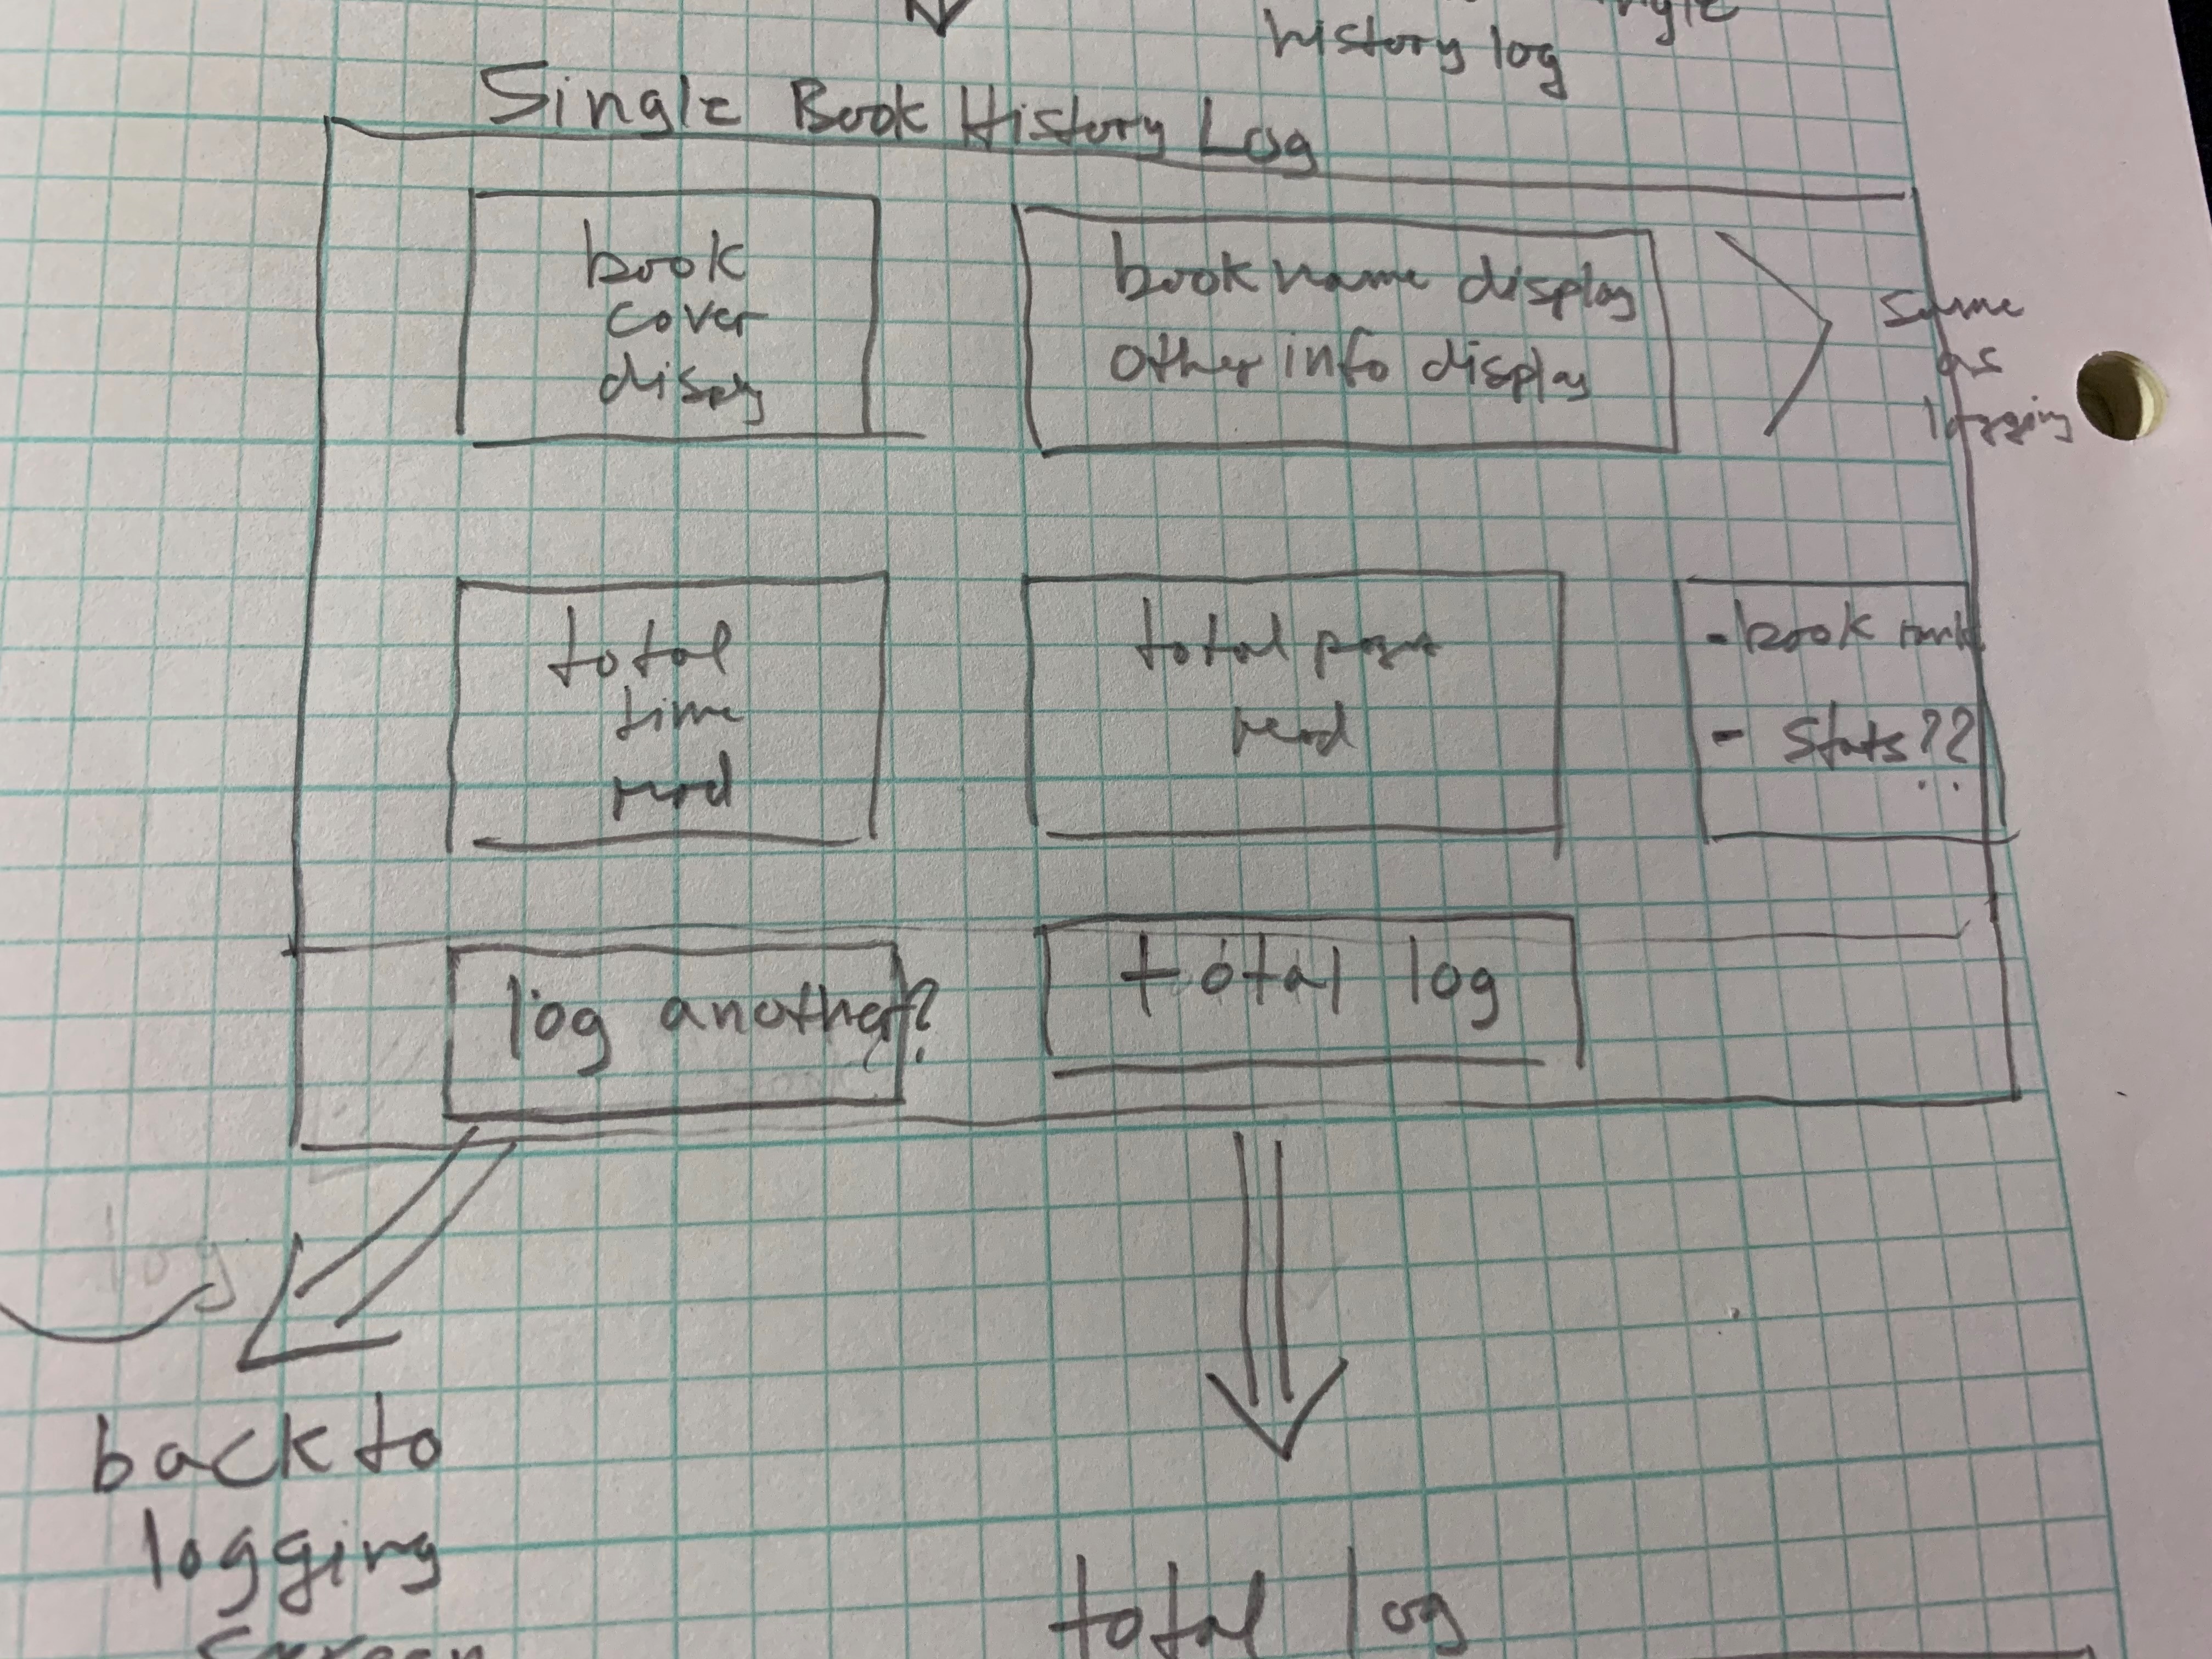 history log
Single Book History Log
book
cover
dispy
book name display
other info display
same
as
logging
total
time
read
total page
read
- book rank
- Stats??
log another?
total log
log
back to
logging
screen
total log